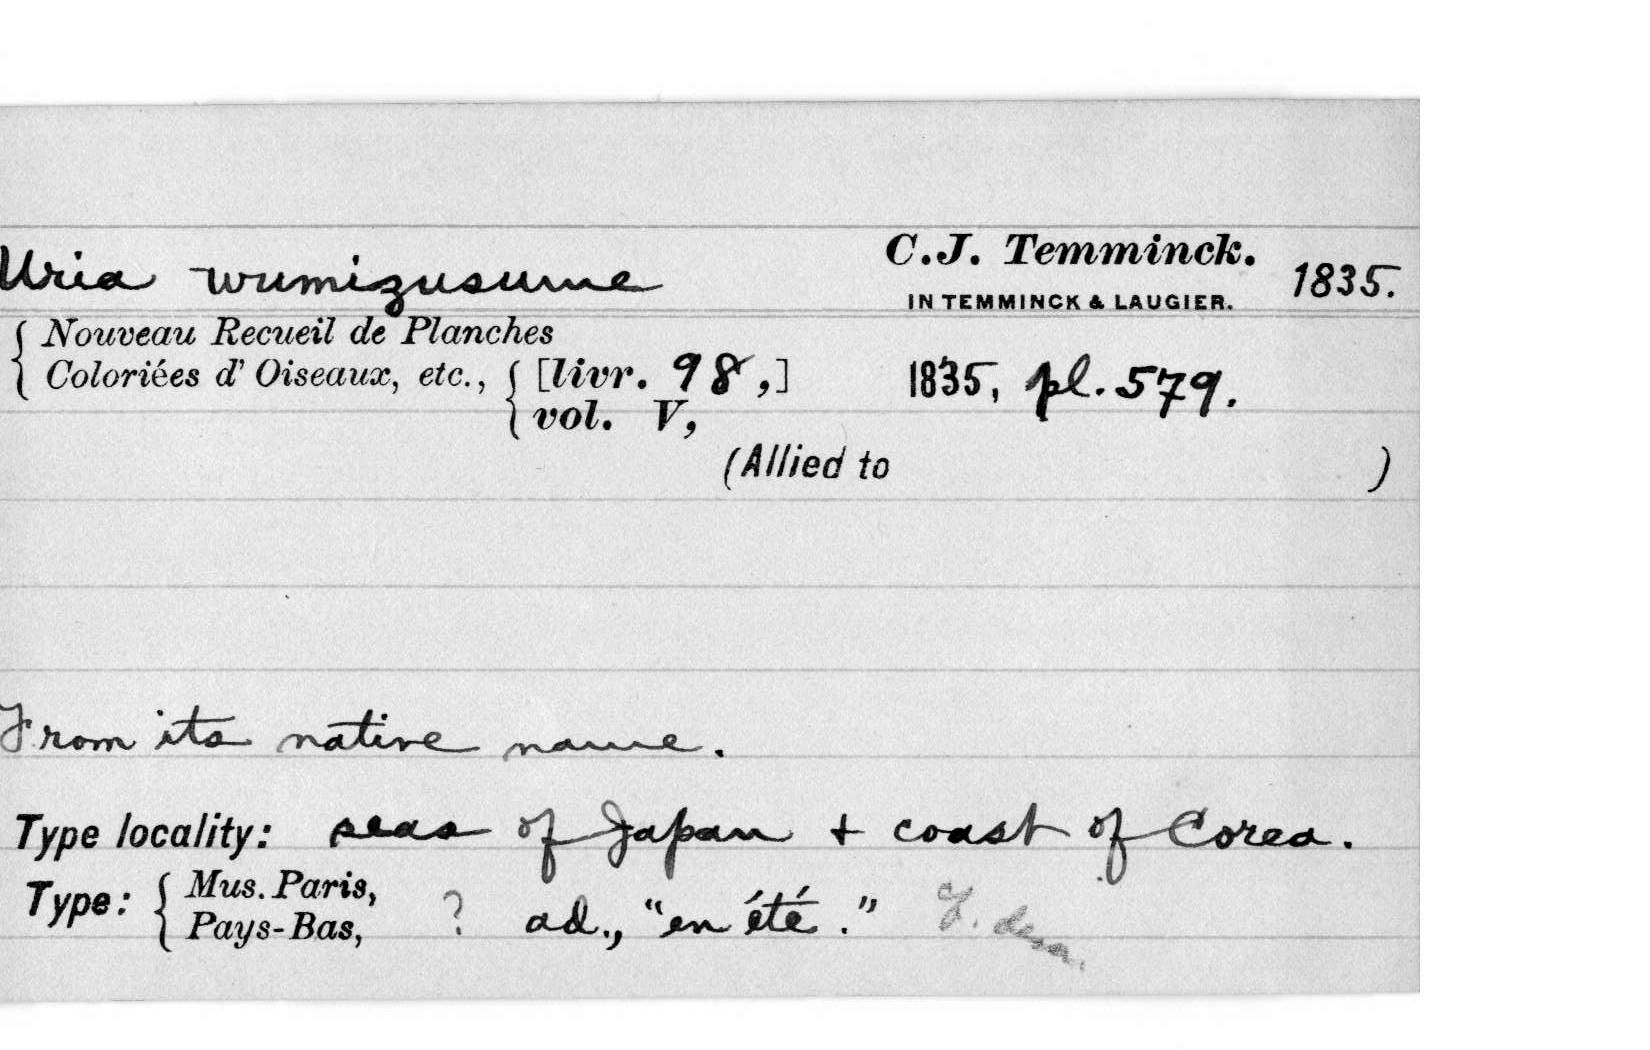 Uria wumizusume C.J. Temminck. 1835.
IN TEMMINCK & LAUGIER.
Nouveau Recueil de Planches
Coloriées d' Oiseaux, etc., [livr. 98,] 1835, pl. 579.
vol. V,
(Allied to )
From its native name.
Type locality: seas of Japan + coast of Corea.
Type: Mus. Paris,
Pays-Bas, ? ad., "en été."